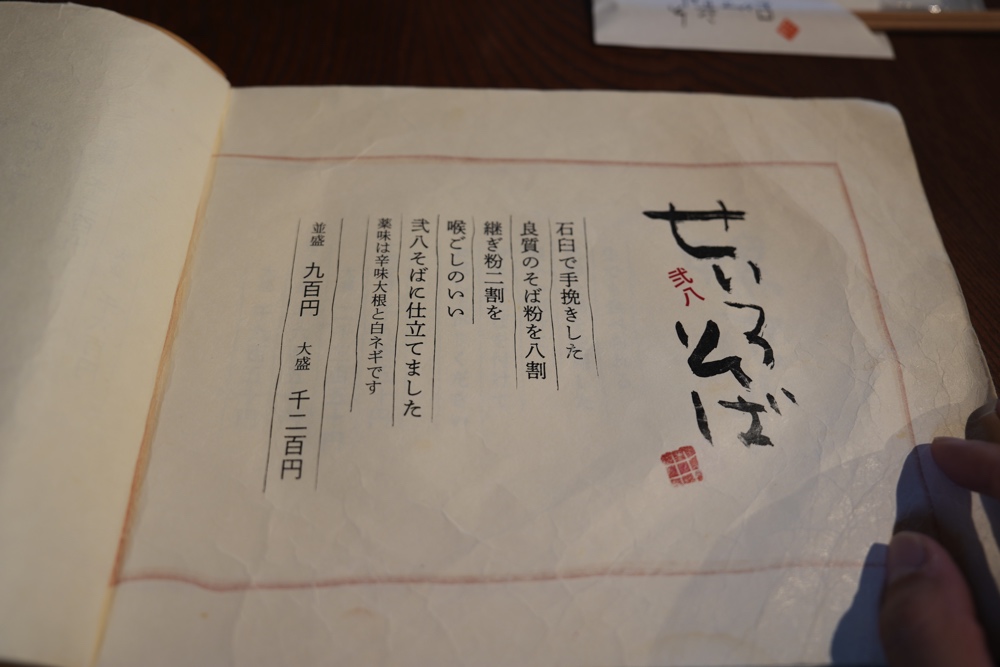 せいろそば
弐八
石臼で手挽きした
良質のそば粉を八割
継ぎ粉二割を
喉ごしのいい
弐八そばに仕立てました
薬味は辛味大根と白ネギです
並盛 九百円 大盛 千二百円